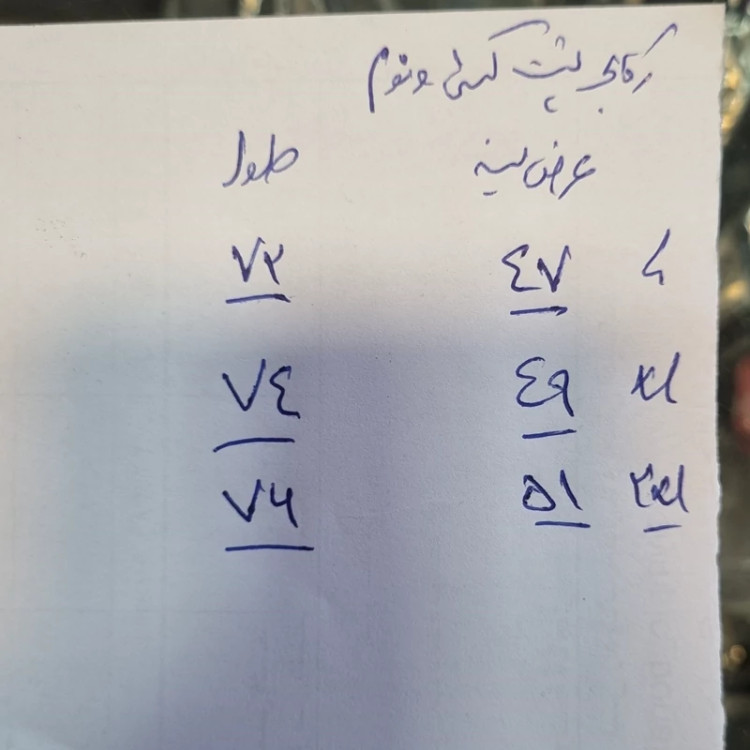 رکابی پشت کتی ونوم
عرض سینه طول
L ٤٧ ٧٢
xl ٤٩ ٧٤
٢xl ۵١ ٧۶